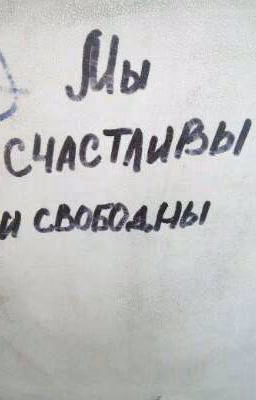 Мы
СЧАСТЛИВЫ
И СВОБОДНЫ